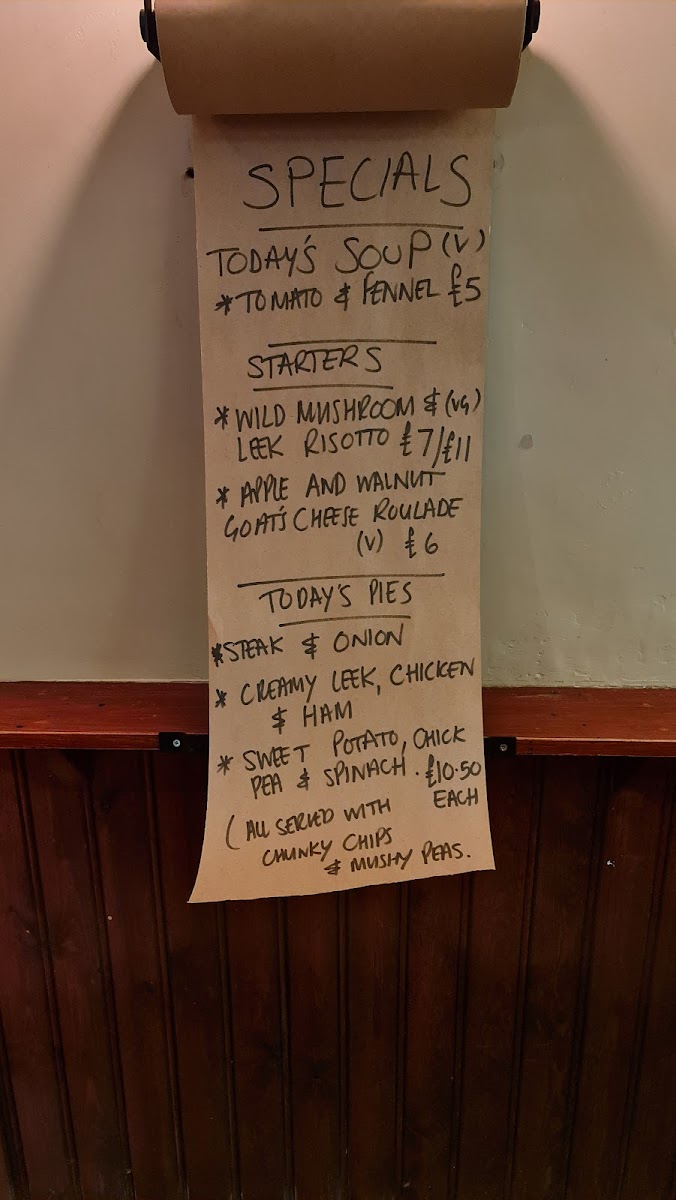 SPECIALS
TODAY'S SOUP (V)
* TOMATO & FENNEL £5
STARTERS
* WILD MUSHROOM & (VG)
LEEK RISOTTO £7/£11
* APPLE AND WALNUT
GOAT'S CHEESE ROULADE
(V) £6
TODAY'S PIES
* STEAK & ONION
* CREAMY LEEK, CHICKEN
& HAM
* SWEET POTATO, CHICK
PEA & SPINACH. £10.50
EACH
(ALL SERVED WITH
CHUNKY CHIPS
& MUSHY PEAS.